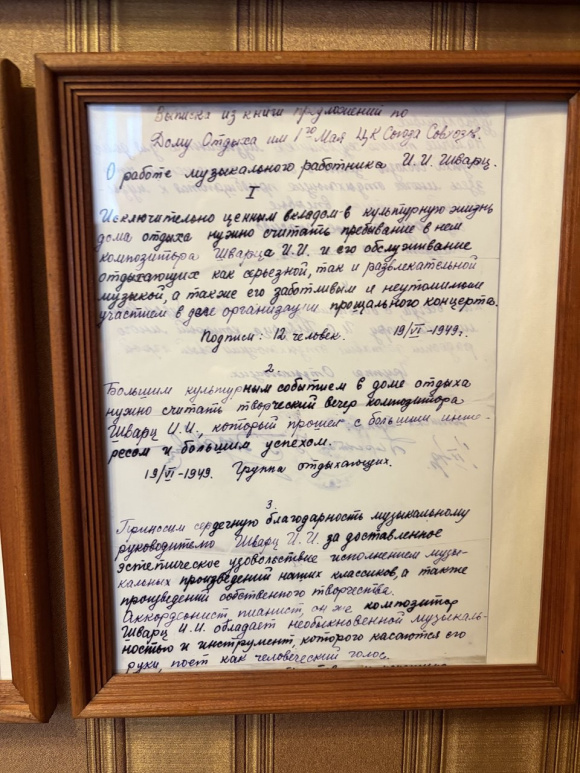 Выписка из книги предложений по
Дому Отдыха им 1го Мая ЦК Союза Совхозов.
О работе музыкального работника И.И. Шварц.
I
Исключительно ценным вкладом в культурную жизнь
дома отдыха нужно считать пребывание в нем
композитора Шварца И.И. и его обслуживание
отдыхающих как серьезной, так и развлекательной
музыкой, а также его заботливым и неутомимым
участием в деле организации прощального концерта.
Подписи: 12 человек. 19/VI-1949г.
2.
Большим культурным событием в доме отдыха
нужно считать творческий вечер композитора
Шварц И.И., который прошел с большим инте-
ресом и большим успехом.
19/VI-1949. Группа отдыхающих.
3.
Приносим сердечную благодарность музыкальному
руководителю Шварц И.И. за доставленное
эстетическое удовольствие исполнением музы-
кальных произведений наших классиков, а также
произведений собственного творчества.
Аккордеонист, пианист, он же композитор
Шварц И.И. обладает необыкновенной музыкаль-
ностью и инструмент, которого касаются его
руки, поет как человеческий голос.